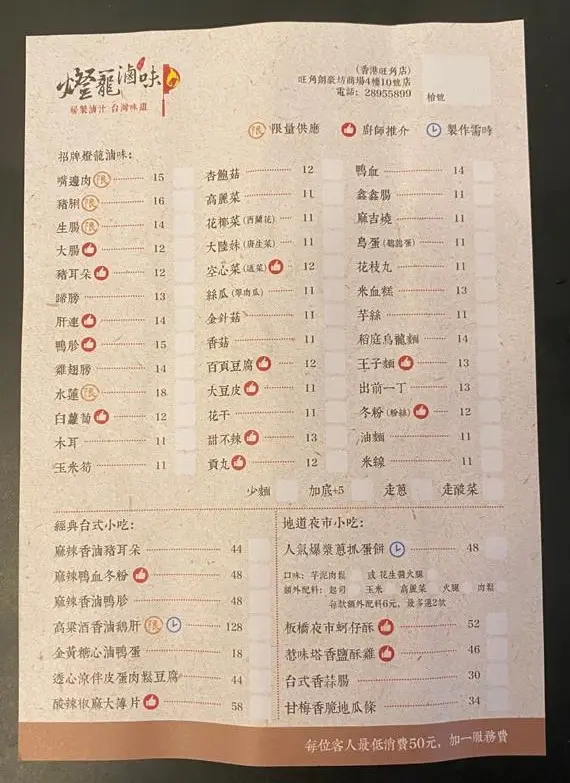 燈籠滷味
秘製滷汁 台灣味道
(香港旺角店)
旺角朗豪坊商場4樓10號店
電話: 28955899
枱號
限 限量供應 廚師推介 製作需時
招牌燈龍滷味:
嘴邊肉 限 15
豬脷 限 16
生腸 限 14
大腸 12
豬耳朵 12
蹄膀 13
肝連 14
鴨胗 15
雞翅膀 14
水蓮 限 18
白蘿蔔 12
木耳 11
玉米筍 11
杏鮑菇 12
高麗菜 11
花椰菜(西蘭花) 11
大陸妹(唐生菜) 11
空心菜(通菜) 12
絲瓜(翠肉瓜) 11
金針菇 11
香菇 11
百頁豆腐 12
大豆皮 11
花干 11
甜不辣 13
貢丸 12
鴨血 14
鑫鑫腸 11
麻吉燒 11
鳥蛋(鵪鶉蛋) 11
花枝丸 11
米血糕 13
芋絲 11
稻庭烏龍麵 14
王子麵 13
出前一丁 13
冬粉(粉絲) 12
油麵 11
米線 11
少麵 加底+5 走蔥 走酸菜
經典台式小吃:
麻辣香滷豬耳朵 44
麻辣鴨血冬粉 48
麻辣香滷鴨胗 48
高粱酒香滷鵝肝 限 128
金黃糖心滷鴨蛋 18
透心涼伴皮蛋肉鬆豆腐 44
酸辣椒麻大薄片 58
地道夜市小吃:
人氣爆漿蔥抓蛋餅 48
口味: 芋泥肉鬆 或 花生醬火腿
額外配料: 起司 玉米 高麗菜 火腿 肉鬆
每款額外配料6元, 最多選2款
板橋夜市蚵仔酥 52
惹味塔香鹽酥雞 46
台式香蒜腸 30
甘梅香脆地瓜條 34
每位客人最低消費50元, 加一服務費